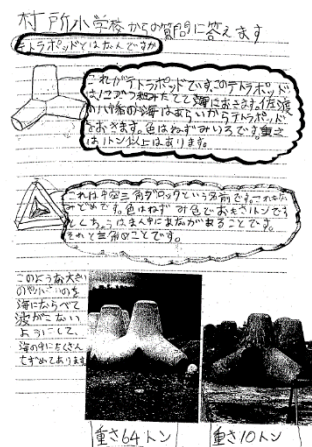 村所小学校からの質問に答えます
テトラポッドとはなんですか
これがテトラポッドです。このテトラポッド
は1こずつ組みたてて海におきます。佐渡
の海はあらいからテトラポッド
をおきます。色はねずみいろです。重さ
は1トン以上はあります。
これは中空三角ブロックという名前です。これも
です。色はねずみ色でおもさ1トンです
まん中にあながあることです。
それと三角のことです。
このような大きい
のや小さいのを
海にならべて
波がこない
ようにして、
海の中にたくさん
しずめてあります
重さ64トン
重さ10トン